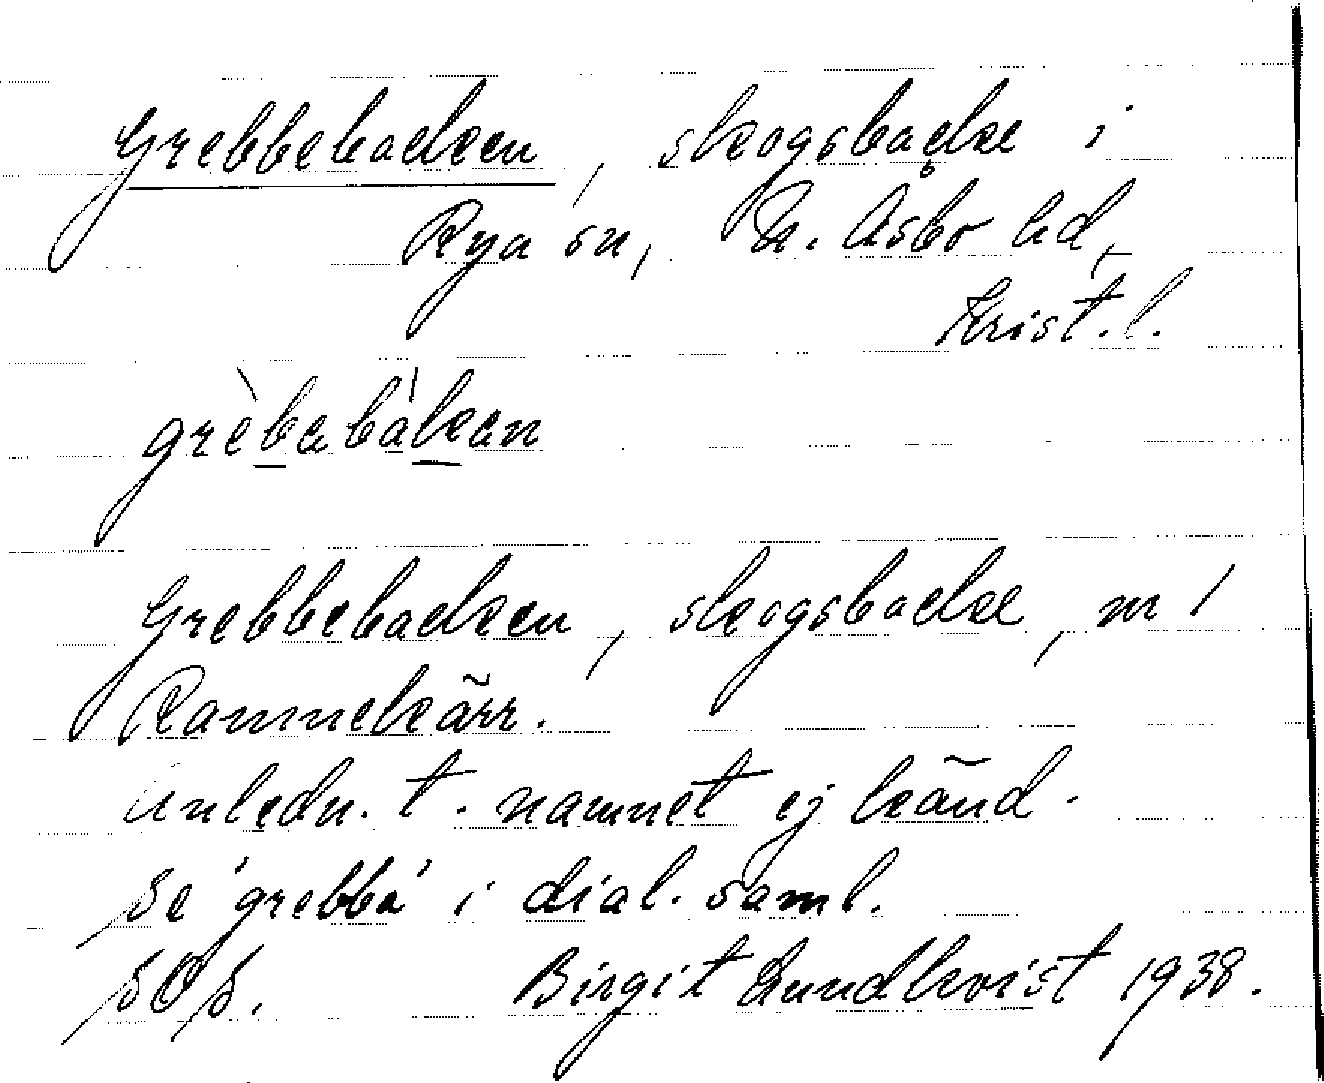 Grebbebacken, skogsbacke i
Rya sn, N. Åsbo hd,
Krist. l.
grèbabàkan
Grebbebacken, skogsbacke, nr 1
Rammekärr.
Anledn. t. namnet ej känd.
Se 'grebba' i dial. saml.
SOS. Birgit Lundkvist 1938.